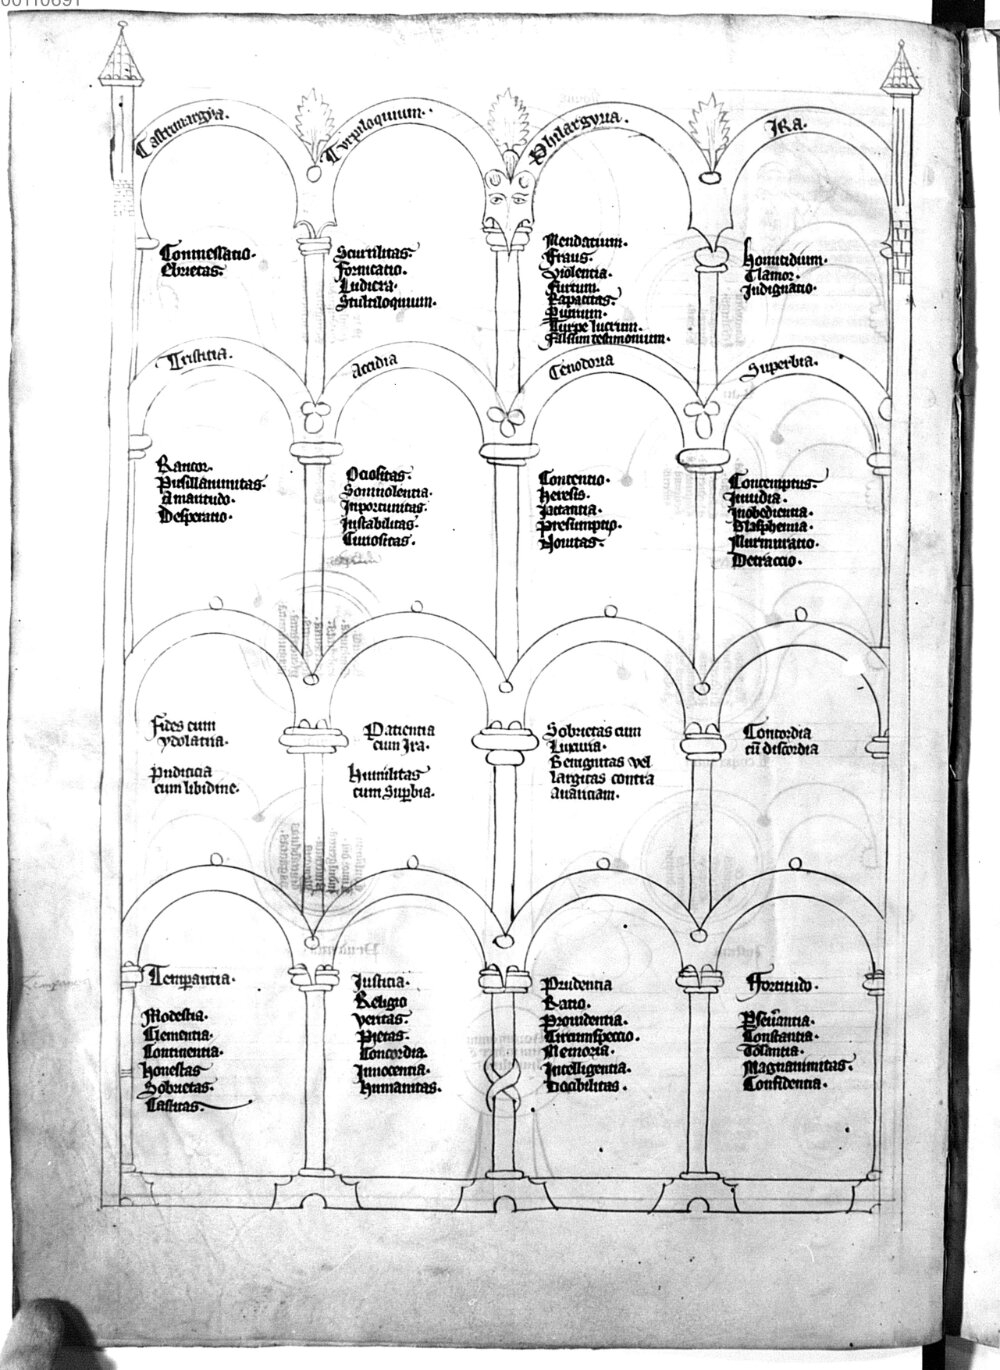 Castrimargya.
Commessatio.
Ebrietas.
Turpiloquium.
Scurrilitas.
Fornicatio.
Ludicra.
Stultiloquium.
Philargyria.
Mendatium.
Fraus.
Violentia.
Furtum.
Rapacitas.
Turpe lucrum.
Falsum testimonium.
IRA.
Homicidium.
Clamor.
Indignatio.
Tristitia.
Rancor.
Pusillanimitas.
Amaritudo.
Desperatio.
Accidia
Ociositas.
Somnolentia.
Inportunitas.
Instabilitas.
Curiositas.
Cenodoxia
Contentio.
Heresis.
Jactantia.
Presumptio.
Novitas.
Superbia.
Contemptus.
Invidia.
Inobedientia.
Blasphemia.
Murmuratio.
Detractio.
Fides cum
ydolatria.
Pudicicia
cum libidine.
Patientia
cum Ira.
Humilitas
cum Supbia.
Sobrietas cum
Luxuria.
Benignitas vel
largitas contra
Avaritiam.
Concordia
cū discordia
Tempantia.
Modestia.
Clementia.
Continentia.
Honestas
Sobrietas.
Castitas.
Justicia.
Religio
Veritas.
Pietas.
Concordia.
Innocentia.
Humanitas.
Prudentia
Ratio.
Providentia.
Circumspeccio.
Memoria.
Intelligentia.
Docibilitas.
Fortitudo.
Constantia.
Magnanimitas.
Confidentia.